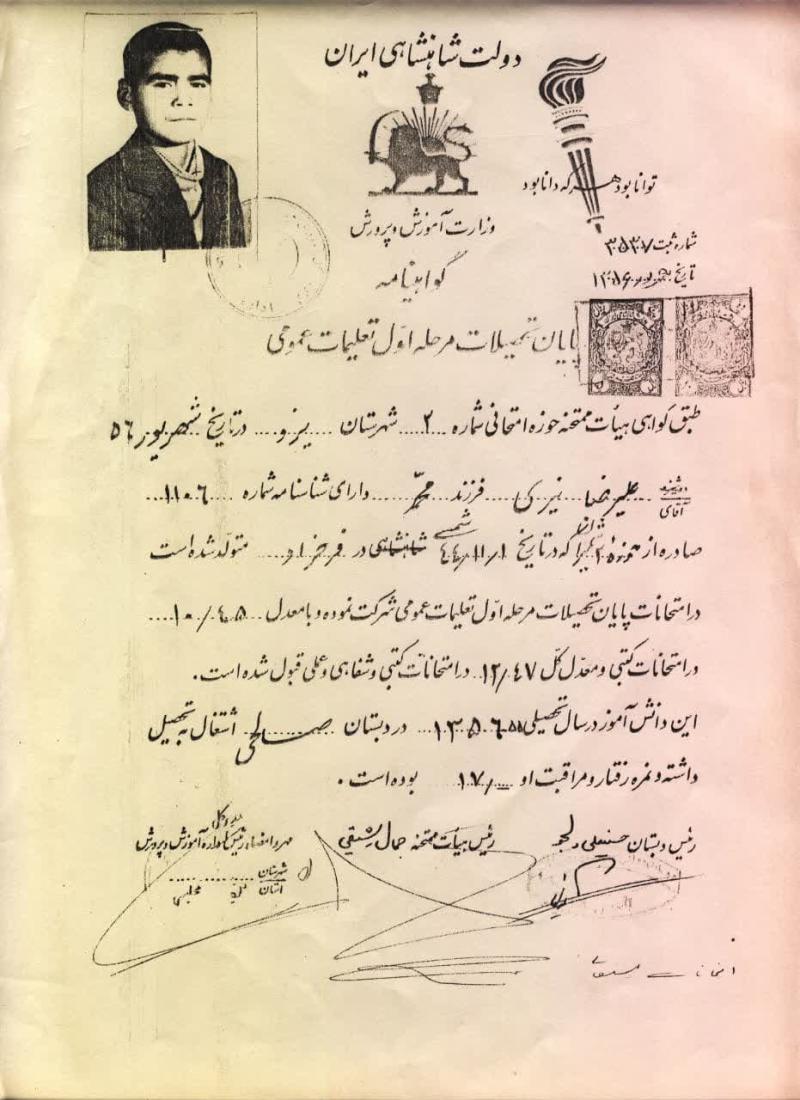 دولت شاهنشاهی ایران
توانا بود هر که دانا بود
وزارت آموزش و پرورش
شماره ثبت ۳۵۳۰۷
تاریخ ۱۳۵۶
گواهینامه
پایان تحصیلات مرحله اوّل تعلیمات عمومی
طبق گواهی هیأت ممتحنه حوزه امتحانی شماره ۲ شهرستان یزد در تاریخ شهریور ۵۶
دوشیزه
آقای علیرضا نیری فرزند محمّد دارای شناسنامه شماره ۱۱۰۶
صادره از که در تاریخ ۴۴/۱۱/۱ شمسی شاهنشاهی در متولّد شده است
در امتحانات پایان تحصیلات مرحله اوّل تعلیمات عمومی شرکت نموده و با معدل ۱۰/۴۰۵
در امتحانات کتبی و معدّل کلّ ۱۲/۴۷ در امتحانات کتبی و شفاهی و عملی قبول شده است.
این دانش آموز در سال تحصیلی ۱۳۵۶ در دبستان صالحی اشتغال به تحصیل
داشته و نمره رفتار و مراقبت او ۱۷/ بوده است.
رئیس دبستان حسنعلی
رئیس هیأت ممتحنه جمال
مدیر کل
مهر و امضاء رئیس اداره آموزش و پرورش
شهرستان
استان مجلسی